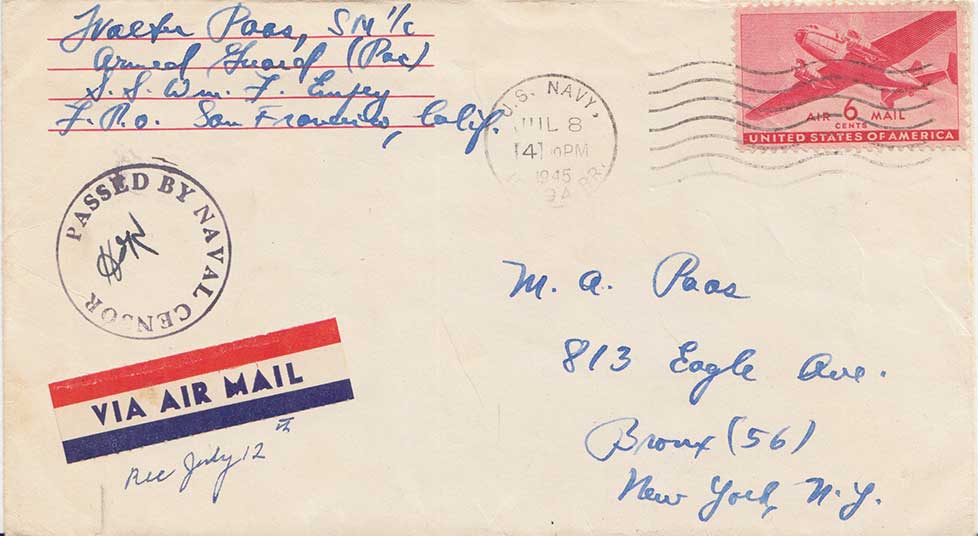 Walter Paas, SM 1/c
Armed Guard (Pac)
S.S. Wm. F. Empey
F.P.O. San Francisco, Calif.
U.S. NAVY,
JUL 8
4 PM
1945
AIR 6 MAIL
CENTS
UNITED STATES OF AMERICA
PASSED BY NAVAL CENSOR
M. A. Paas
813 Eagle Ave.
Bronx (56)
New York, N.Y.
VIA AIR MAIL
Rec July 12th